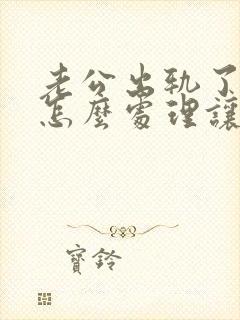 老公出轨了
怎麼處理讓
寶鈴